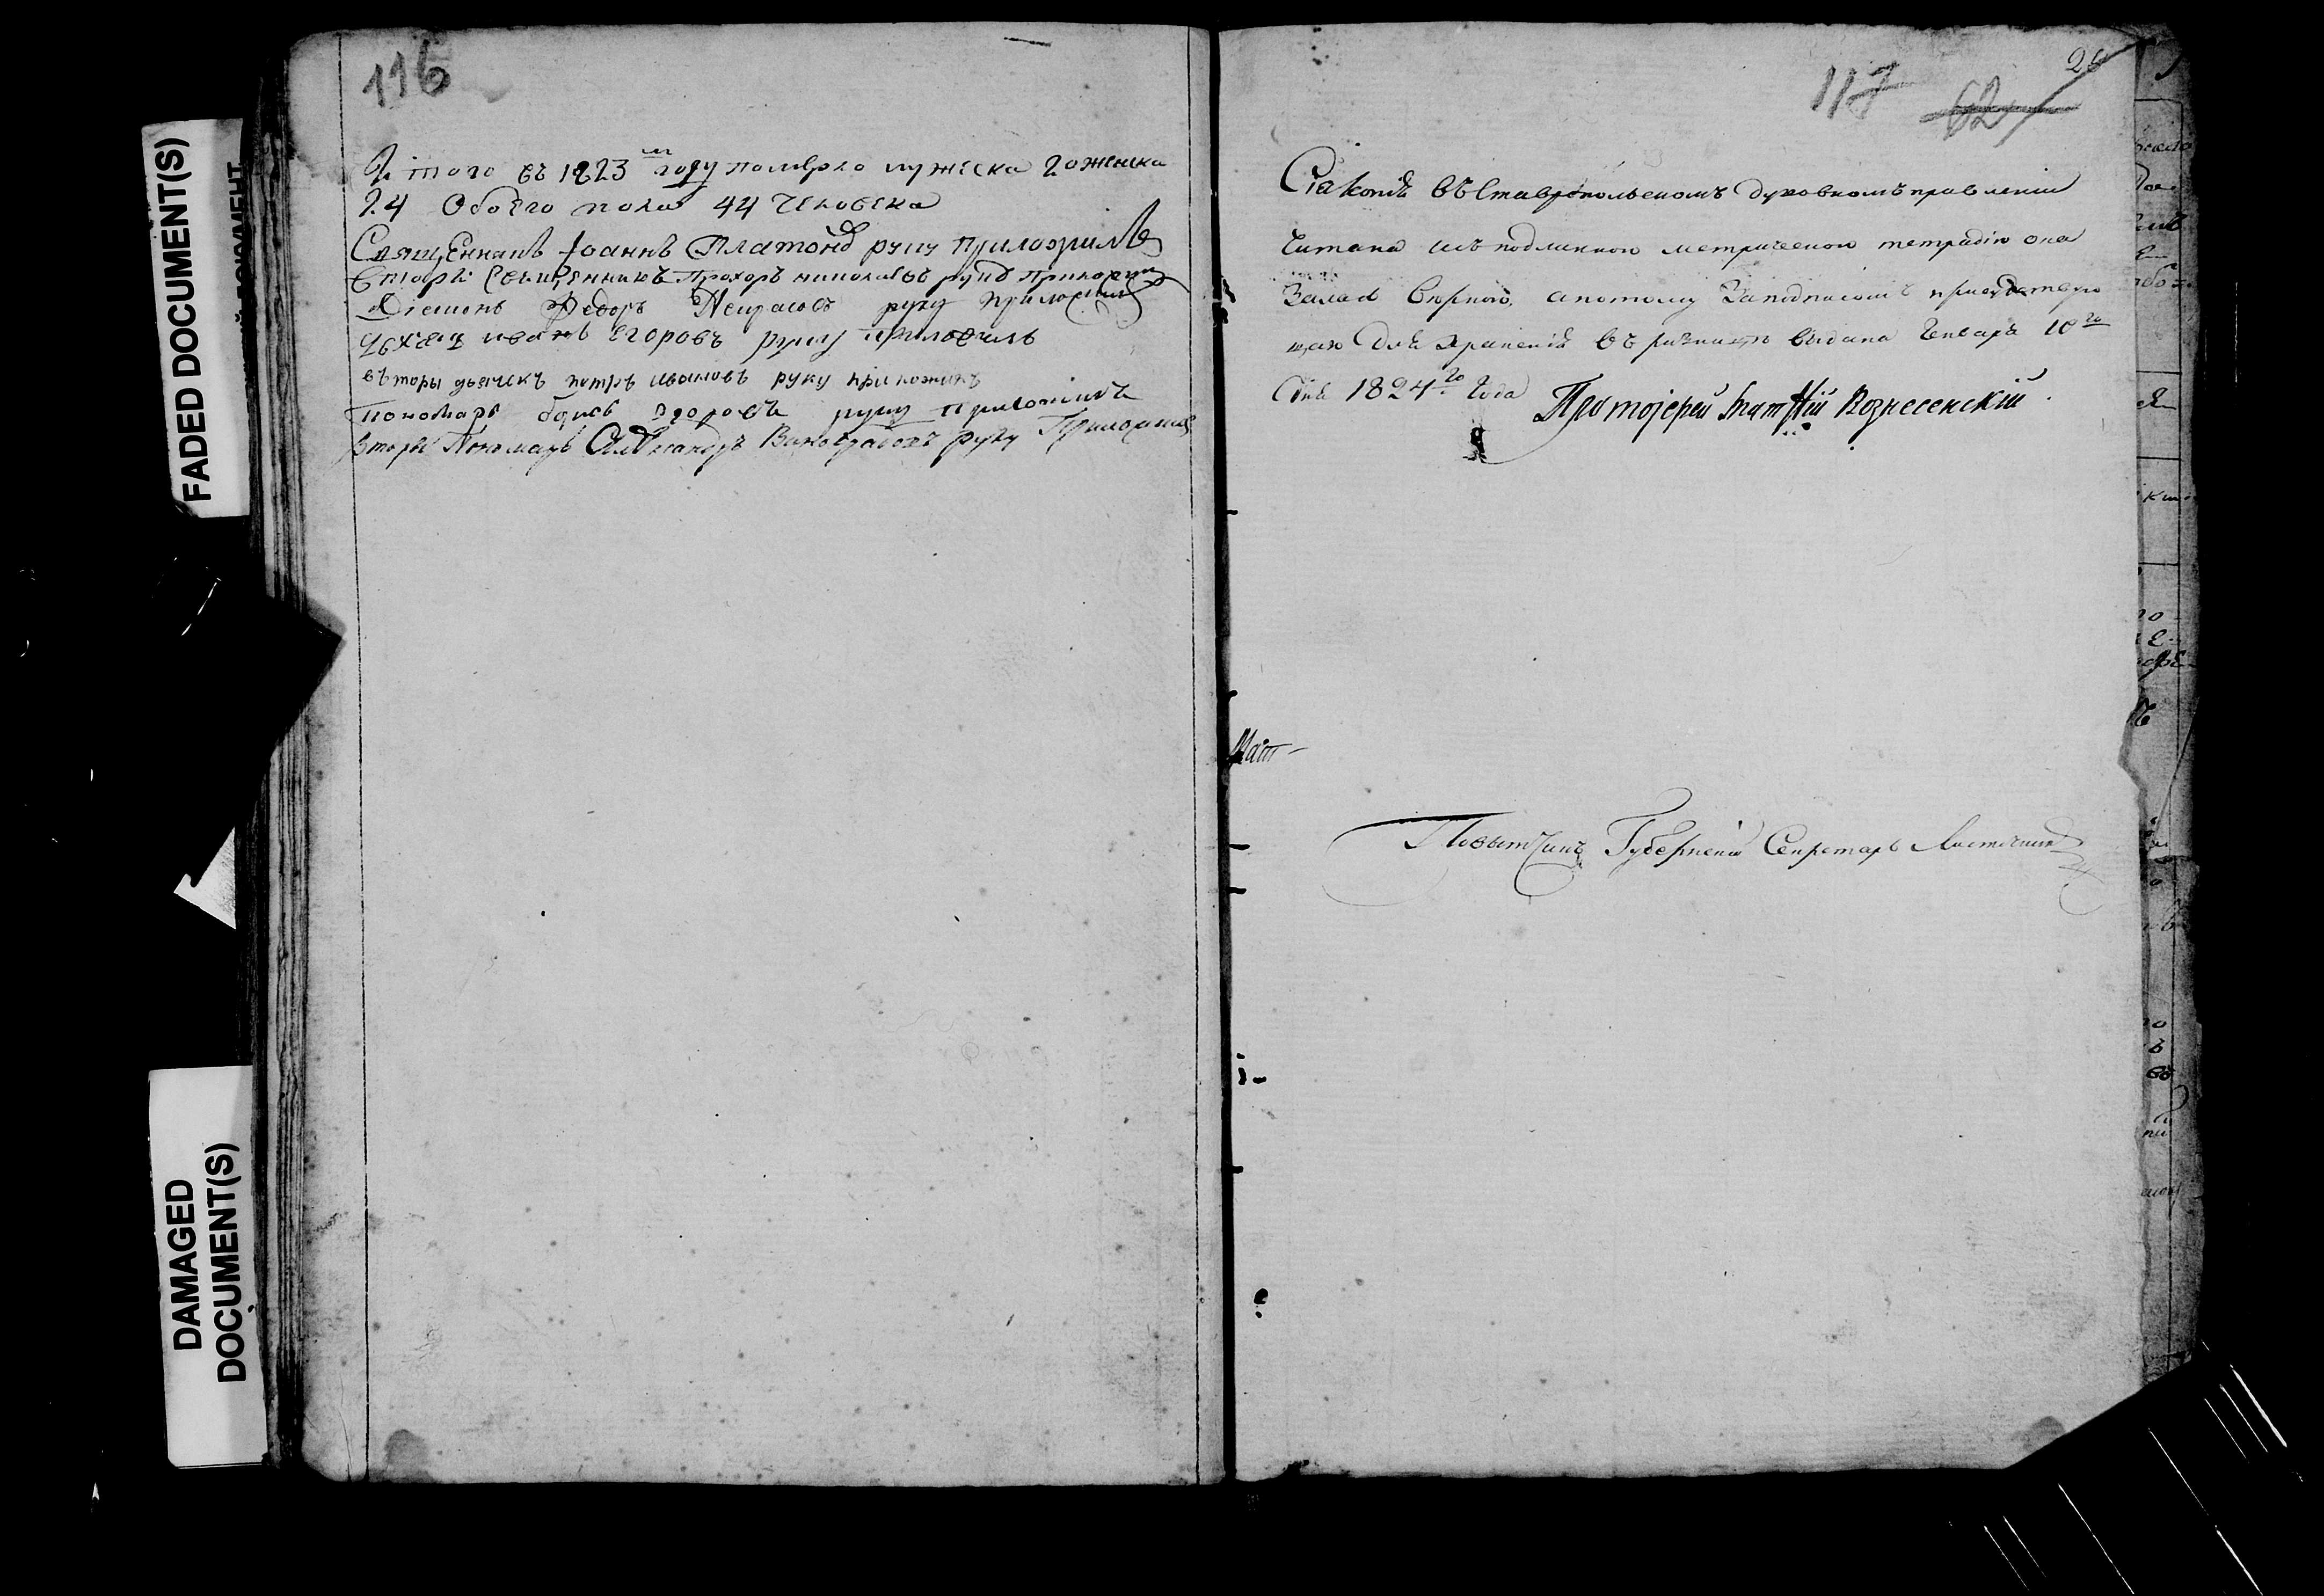 FADED DOCUMENT(S)
DAMAGED
DOCUMENT(S)
116
Итого въ 1823м году померло мужеска 20 женска
24 Обоего пола 44 человека
Священникъ Іоаннъ Платоновъ руку приложилъ
вторы священникъ Прохоръ николаевъ руку приложилъ
Діяконъ Федоръ Некрасовъ руку приложилъ
иванъ Егоровъ руку приложилъ
въторы дьячекъ петръ ивановъ руку приложилъ
пономарь руку приложилъ
вторы Пономарь Александръ Виноградовъ руку Приложилъ
26
117
62
Сія копія въ Ставропольскомъ духовномъ правленіи
читана съ подлинною метрическою тетрадью она
верною, а потому за подписомъ присудствую
щаго для храненія въ ризницу выдана Генваря 10го
дня 1824го года Протоіерей Вознесенскій.
Повытчикъ Губернскій Секретарь